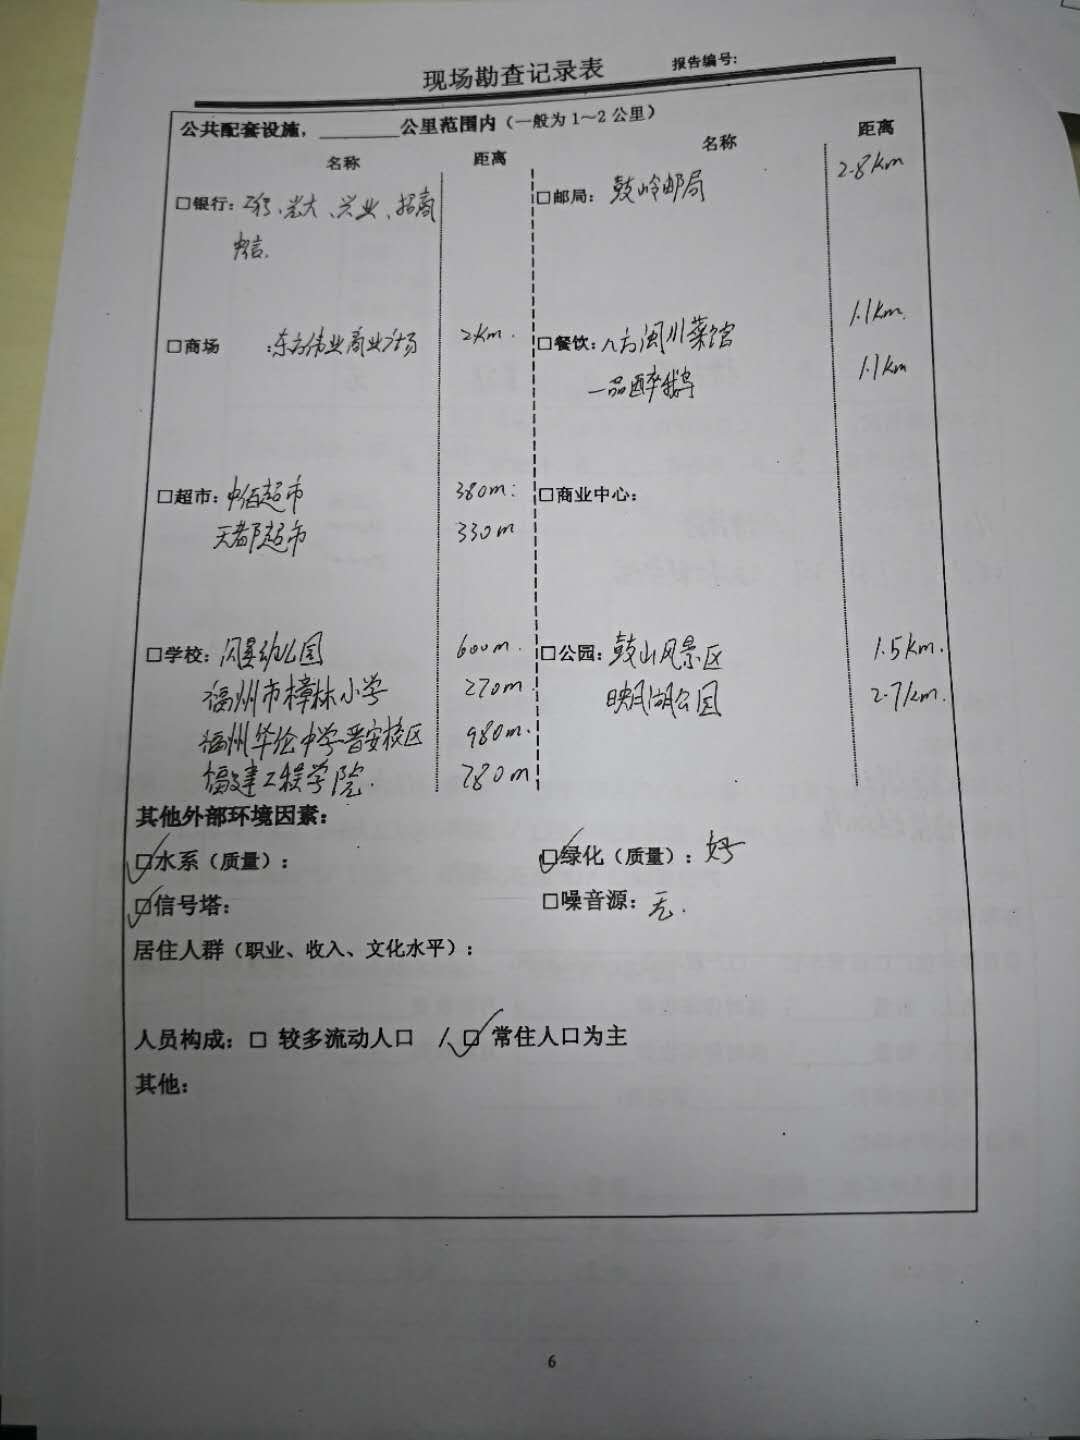 现场勘查记录表 报告编号:
公共配套设施，________公里范围内（一般为1～2公里）
名称 距离 名称 距离
□银行: 、光大、兴业、招商 □邮局: 鼓岭邮局 2.8km
中信.
□商场 :东方伟业商业广场 2km. □餐饮: 八方闽川菜馆 1.1km.
一品醉鹅 1.1km
□超市: 中佰超市 380m. □商业中心:
天都超市 330m
□学校: 幼儿园 600m. □公园: 鼓山风景区 1.5km.
福州市樟林小学 270m. 映月湖公园 2.7km.
福州华伦中学晋安校区 980m.
福建工程学院. 780m
其他外部环境因素:
☑水系（质量）: ☑绿化（质量）: 好
☑信号塔: □噪音源: 无.
居住人群（职业、收入、文化水平）:
人员构成: □ 较多流动人口 / ☑ 常住人口为主
其他:
6